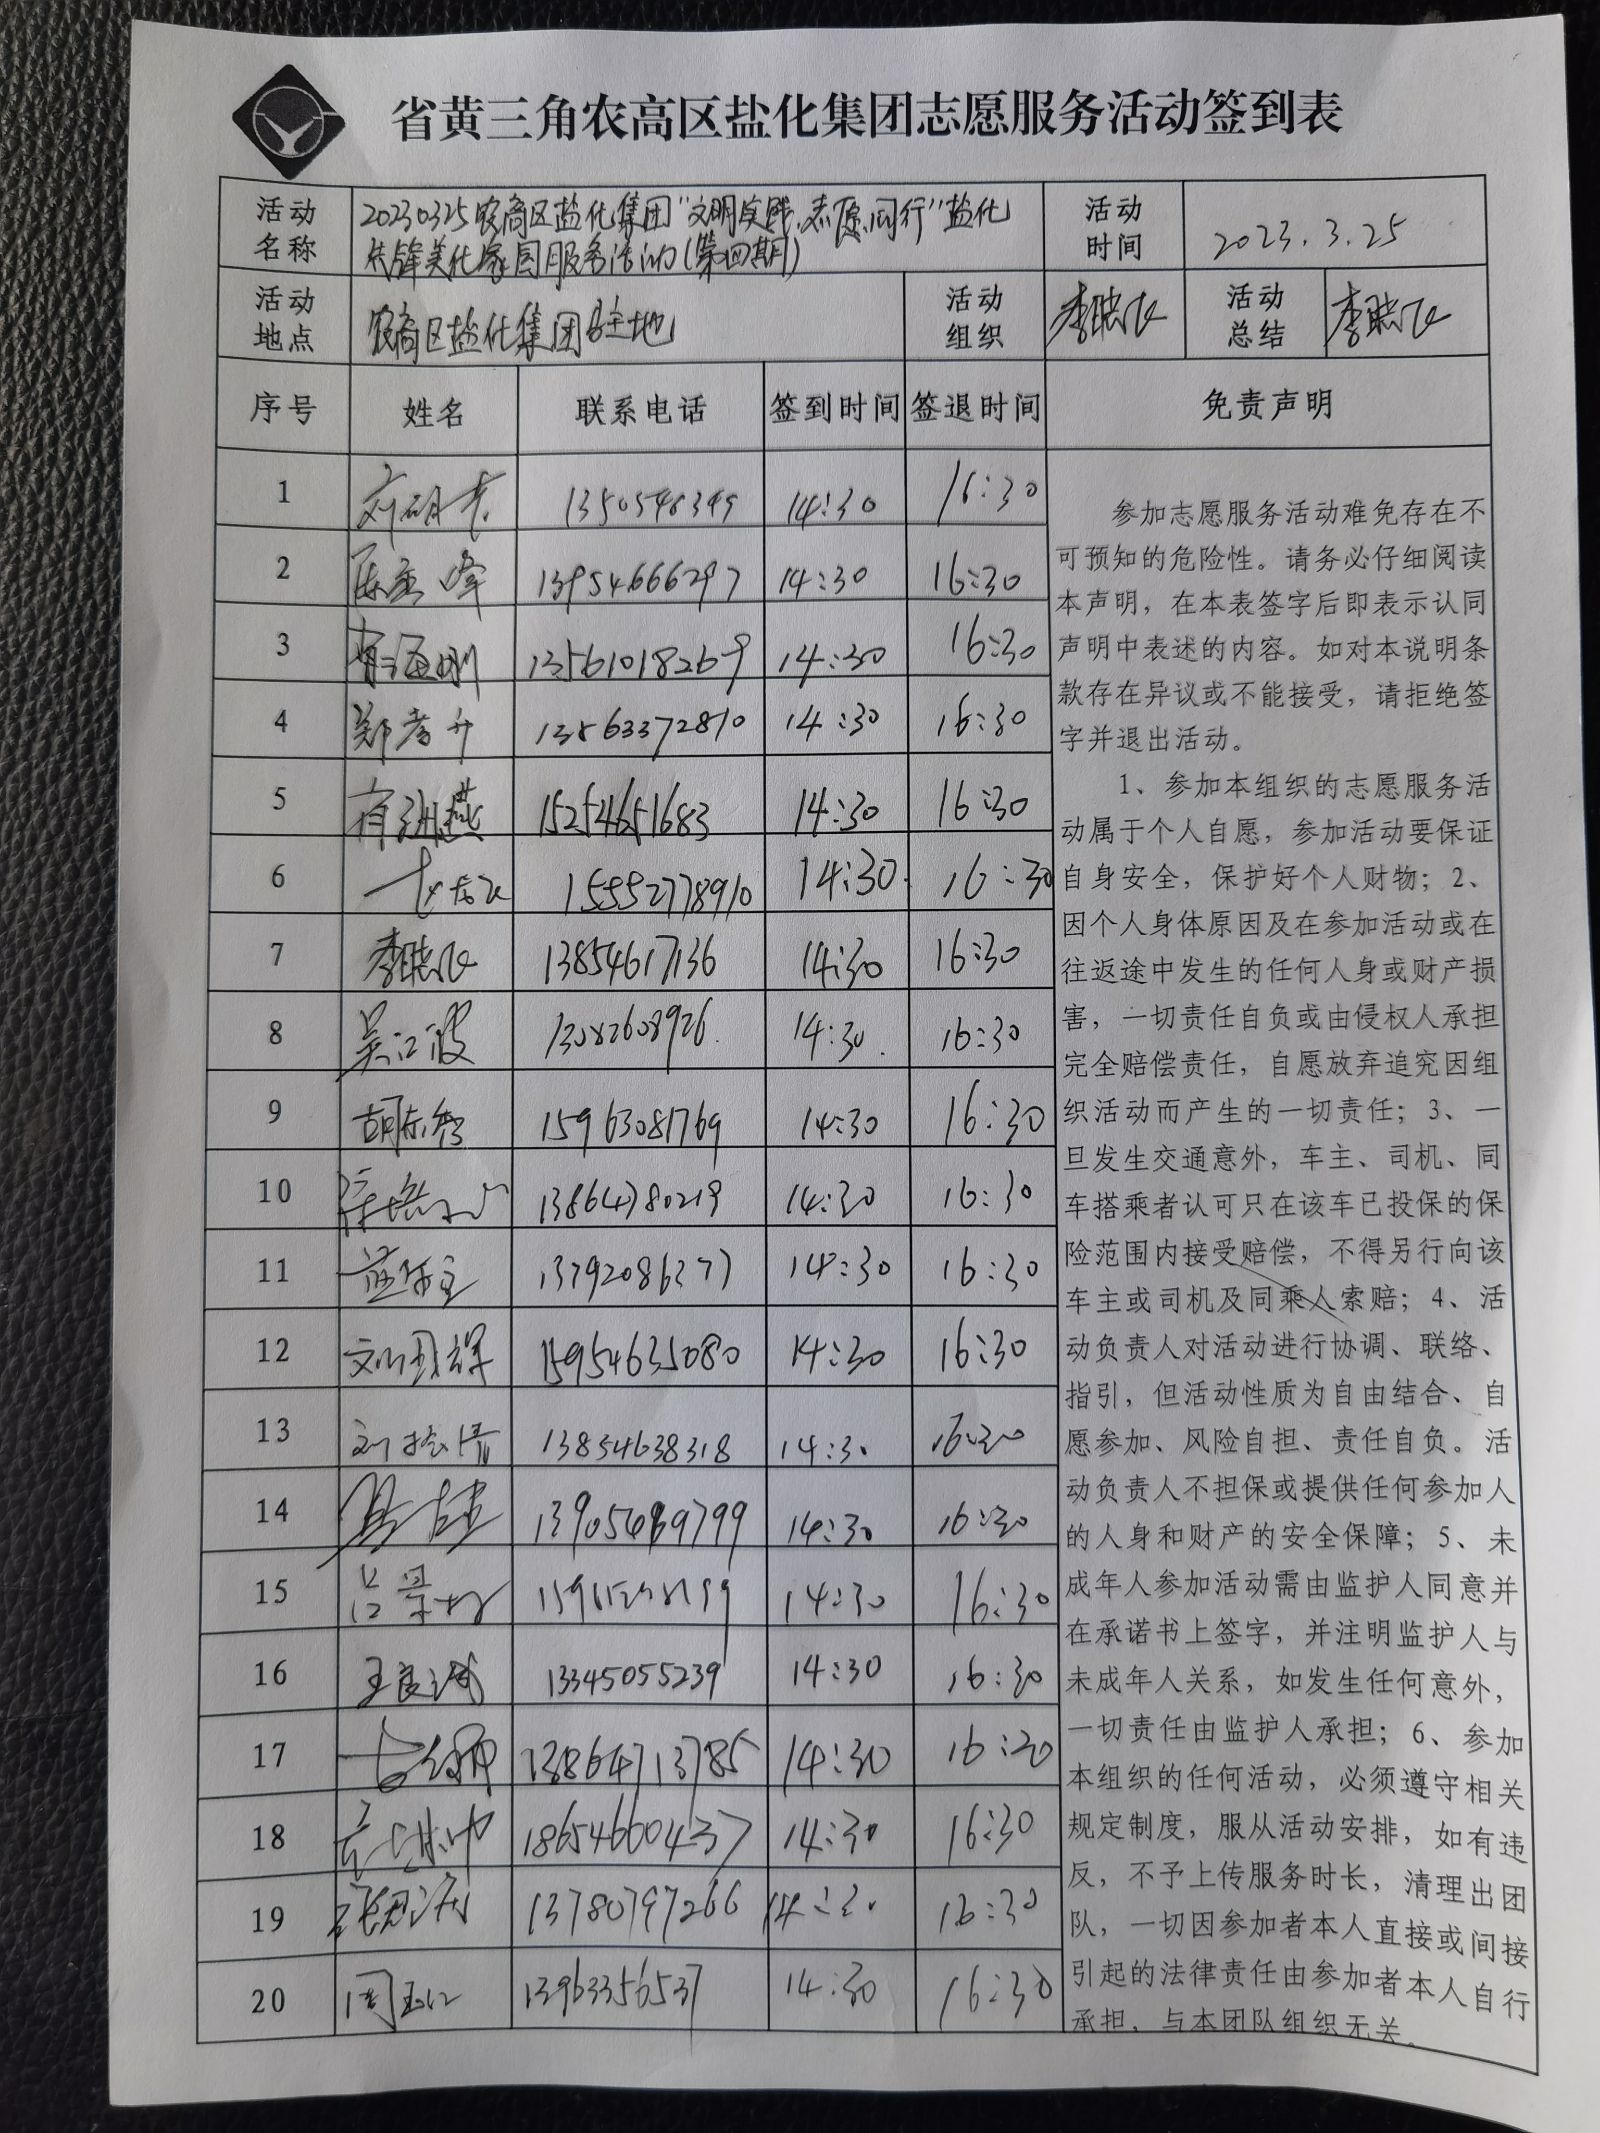 省黄三角农高区盐化集团志愿服务活动签到表
活动名称 20230325农高区盐化集团"文明实践,志愿同行"盐化
先锋美化家园服务活动(第四期)
活动时间 2023.3.25
活动地点 农高区盐化集团驻地 活动组织 李 活动总结 李
序号 姓名 联系电话 签到时间 签退时间 免责声明
1 14:30 16:30
2 13954666297 14:30 16:30
3 13561018269 14:30 16:30
4 郑孝升 13563372810 14:30 16:30
5 15254651683 14:30 16:30
6 15552778910 14:30 16:30
7 李 13854617136 14:30 16:30
8 吴江波 13082608926 14:30 16:30
9 15963081769 14:30 16:30
10 13864780219 14:30 16:30
11 14:30 16:30
12 刘国辉 15954635080 14:30 16:30
13 刘 13854638318 14:30 16:30
14 14:30 16:30
15 吕景 14:30 16:30
16 王良诚 13345055239 14:30 16:30
17 13864713785 14:30 16:30
18 18654660437 14:30 16:30
19 13780797266 14:30 16:30
20 周 13963356537 14:30 16:30
参加志愿服务活动难免存在不
可预知的危险性。请务必仔细阅读
本声明,在本表签字后即表示认同
声明中表述的内容。如对本说明条
款存在异议或不能接受,请拒绝签
字并退出活动。
1、参加本组织的志愿服务活
动属于个人自愿,参加活动要保证
自身安全,保护好个人财物;2、
因个人身体原因及在参加活动或在
往返途中发生的任何人身或财产损
害,一切责任自负或由侵权人承担
完全赔偿责任,自愿放弃追究因组
织活动而产生的一切责任;3、一
旦发生交通意外,车主、司机、同
车搭乘者认可只在该车已投保的保
险范围内接受赔偿,不得另行向该
车主或司机及同乘人索赔;4、活
动负责人对活动进行协调、联络、
指引,但活动性质为自由结合、自
愿参加、风险自担、责任自负。活
动负责人不担保或提供任何参加人
的人身和财产的安全保障;5、未
成年人参加活动需由监护人同意并
在承诺书上签字,并注明监护人与
未成年人关系,如发生任何意外,
一切责任由监护人承担;6、参加
本组织的任何活动,必须遵守相关
规定制度,服从活动安排,如有违
反,不予上传服务时长,清理出团
队,一切因参加者本人直接或间接
引起的法律责任由参加者本人自行
承担,与本团队组织无关。